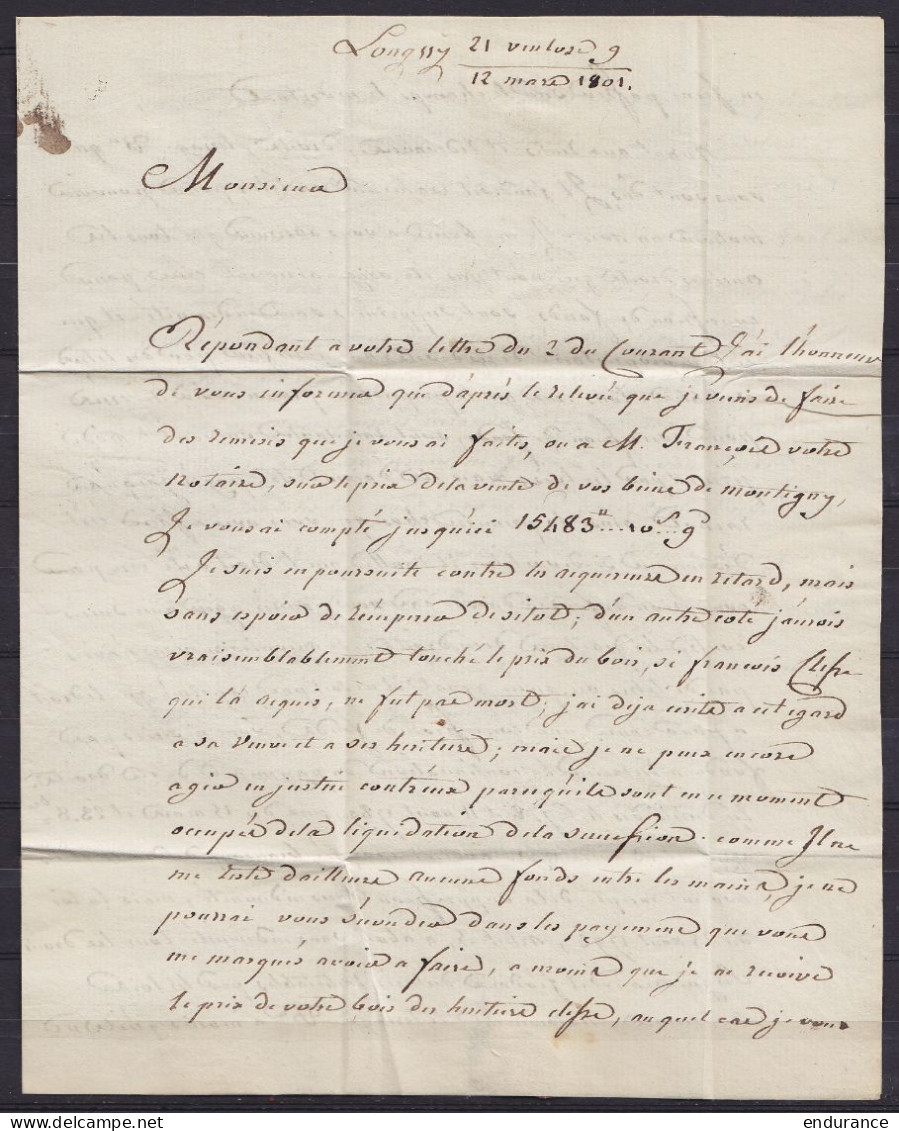 Longwy 21 ventose 9
12 mars 1801.
Monsieur
Répondant a votre lettre du 2 du Courant J'ai l'honneur
de vous informer que d'après le relevé que je viens de faire
des remises que je vous ai faites, ou a M. François votre
notaire, sur le prix de la vente de vos biens de montigny,
Je vous ai compté jusqu'ici 15483ᵗᵗ....10ˢ...9ᵈ
Je suis en poursuite contre les acquereurs en retard, mais
sans espoir de l'emporter de sitot; d'un autre coté j'aurois
vraisemblablement touché le prix du bois, si françois
qui l'a acquis, ne fut pas mort; j'ai deja écrit a cet égard
a sa veuve et a ses heritiers; mais je ne puis encore
agir en justice contr'eux parcequ'ils sont en ce moment
occupés de la liquidation de la succession. comme Il ne
me reste d'ailleurs aucuns fonds entre les mains, je ne
pourrai vous dans les payements que vous
me marqués avoir a faire, a moins que je ne recoive
le prix de votre bois des heritiers, au quel cas je vous
delcampe.net
endurance